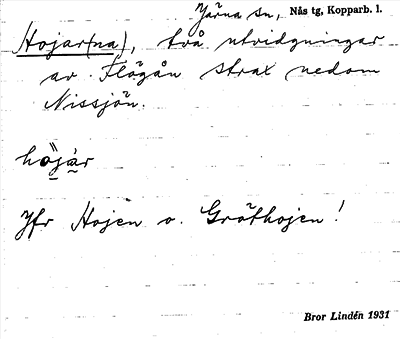 Järna sn, Nås tg, Kopparb. l.
Hojar(na), två utvidgningar
av Flögån strax nedom
Nissjön.
höjàr
Jfr Hojen o. Gröthojen!
Bror Lindén 1931